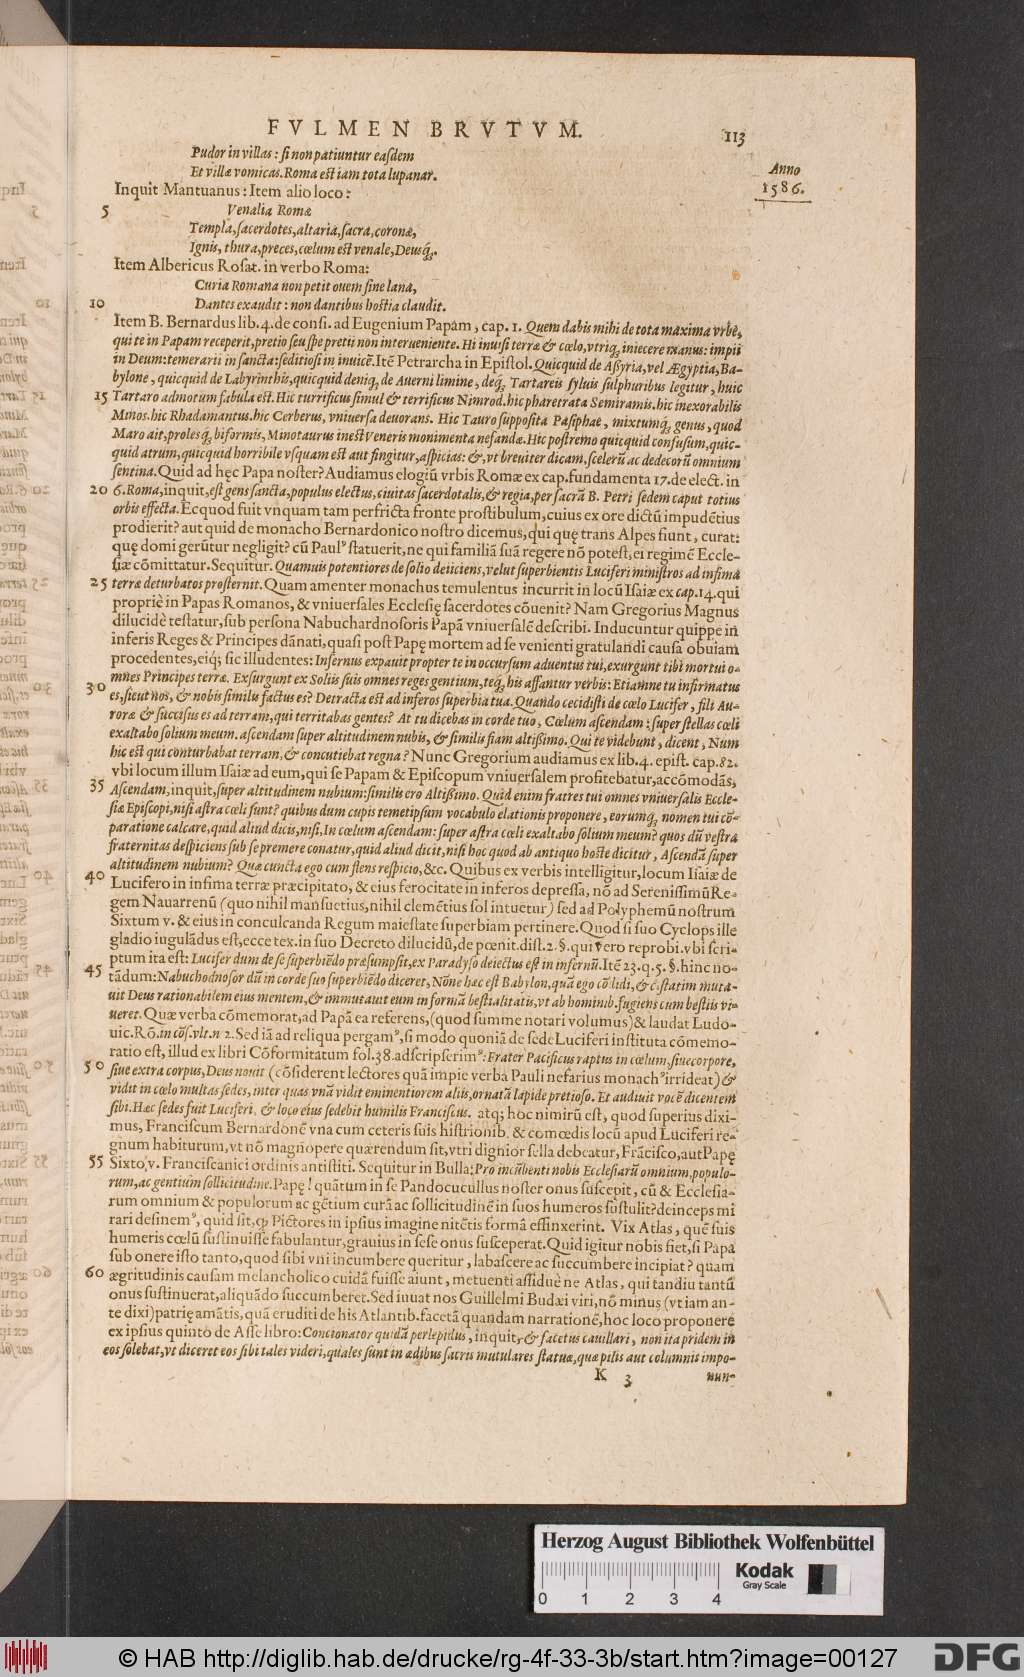 FVLMEN BRVTVM. 113
Anno
1586.
Pudor in villas: si non patiuntur easdem
Et villæ vomicas. Roma est iam tota lupanar.
Inquit Mantuanus: Item alio loco:
5 Venalia Romæ
Templa, sacerdotes, altaria, sacra, coronæ,
Ignis, thura, preces, cœlum est venale, Deusq́;.
Item Albericus Rosat. in verbo Roma:
Curia Romana non petit ouem sine lana,
10 Dantes exaudit: non dantibus hostia claudit.
Item B. Bernardus lib. 4. de consi. ad Eugenium Papam, cap. 1. Quem dabis mihi de tota maxima vrbe,
qui te in Papam receperit, pretio seu spe pretii non interueniente. Hi inuisi terræ & cœlo, vtriq; iniecere manus: impii
in Deum: temerarii in sancta: seditiosi in inuicē. Itē Petrarcha in Epistol. Quicquid de Assyria, vel Ægyptia, Ba-
bylone, quicquid de Labyrinthis, quicquid deniq; de Auerni limine, deq́; Tartareis syluis sulphuribus legitur, huic
15 Tartaro admotum fabula est. Hic turrificus simul & terrificus Nimrod. hic pharetrata Semiramis. hic inexorabilis
Minos. hic Rhadamantus. hic Cerberus, vniuersa deuorans. Hic Tauro supposita Pasiphae, mixtumq́; genus, quod
Maro ait, prolesq́; biformis, Minotaurus inest Veneris monimenta nefandæ. Hic postremo quicquid confusum, quic-
quid atrum, quicquid horribile vsquam est aut fingitur, aspicias: &, vt breuiter dicam, scelerū ac dedecorū omnium
sentina. Quid ad hęc Papa noster? Audiamus elogiū vrbis Romæ ex cap. fundamenta 17. de elect. in
20 6. Roma, inquit, est gens sancta, populus electus, ciuitas sacerdotalis, & regia, per sacrā B. Petri sedem caput totius
orbis effecta. Ecquod fuit vnquam tam perfricta fronte prostibulum, cuius ex ore dictū impudētius
prodierit? aut quid de monacho Bernardonico nostro dicemus, qui quę trans Alpes fiunt, curat:
quę domi gerūtur negligit? cū Paulꝰ statuerit, ne qui familiā suā regere nō potest, ei regimē Eccle-
siæ cōmittatur. Sequitur. Quamuis potentiores de solio deiiciens, velut superbientis Luciferi ministros ad infima
25 terræ deturbatos prosternit. Quam amenter monachus temulentus incurrit in locū Isaiæ ex cap. 14. qui
propriè in Papas Romanos, & vniuersales Ecclesię sacerdotes cōuenit? Nam Gregorius Magnus
dilucidè testatur, sub persona Nabuchardnosoris Papā vniuersalē describi. Inducuntur quippe in
inferis Reges & Principes dānati, quasi post Papę mortem ad se venienti gratulandi causa obuiam
procedentes, eiq́; sic illudentes: Infernus expauit propter te in occursum aduentus tui, exurgunt tibi mortui o-
mnes Principes terræ. Exsurgunt ex Soliis suis omnes reges gentium, teq́; his affantur verbis: Etiamne tu infirmatus
30 es, sicut nos, & nobis similis factus es? Detracta est ad inferos superbia tua. Quando cecidisti de cœlo Lucifer, fili Au-
roræ & succisus es ad terram, qui territabas gentes? At tu dicebas in corde tuo, Cœlum ascendam: super stellas cœli
exaltabo solium meum. ascendam super altitudinem nubis, & similis fiam altissimo. Qui te videbunt, dicent, Num
hic est qui conturbabat terram, & concutiebat regna? Nunc Gregorium audiamus ex lib. 4. epist. cap. 82.
vbi locum illum Isaiæ ad eum, qui se Papam & Episcopum vniuersalem profitebatur, accōmodās,
35 Ascendam, inquit, super altitudinem nubium: similis ero Altissimo. Quid enim fratres tui omnes vniuersalis Eccle-
siæ Episcopi, nisi astra cœli sunt? quibus dum cupis temetipsum vocabulo elationis proponere, eorumq́; nomen tui cō-
paratione calcare, quid aliud dicis, nisi, In cœlum ascendam: super astra cœli exaltabo solium meum? quos dū vestra
fraternitas despiciens sub se premere conatur, quid aliud dicit, nisi hoc quod ab antiquo hoste dicitur, Ascendā super
altitudinem nubium? Quæ cuncta ego cum flens respicio, &c. Quibus ex verbis intelligitur, locum Isaiæ de
40 Lucifero in infima terræ præcipitato, & eius ferocitate in inferos depressa, nō ad Serenissimū Re-
gem Nauarrenū (quo nihil mansuetius, nihil clemētius sol intuetur) sed ad Polyphemū nostrum
Sixtum v. & eius in conculcanda Regum maiestate superbiam pertinere. Quod si suo Cyclops ille
gladio iugulādus est, ecce tex. in suo Decreto dilucidū, de pœnit. dist. 2. §. qui vero reprobi. vbi scri-
ptum ita est: Lucifer dum de se superbiēdo præsumpsit, ex Paradyso deiectus est in infernū. Itē 23. q. 5. §. hinc no-
45 tādum: Nabuchodnosor dū in corde suo superbiēdo diceret, Nōne hæc est Babylon, quā ego cōdidi, & c. statim muta-
uit Deus rationabilem eius mentem, & immutauit eum in formā bestialitatis, vt ab hominib. fugiens cum bestiis vi-
ueret. Quæ verba cōmemorat, ad Papā ea referens, (quod summe notari volumus) & laudat Ludo-
uic. Rō. in cōs. vlt. n 2. Sed iā ad reliqua pergamꝰ, si modo quoniā de sede Luciferi instituta cōmemo-
ratio est, illud ex libri Cōformitatum fol. 38. adscripserimꝰ: Frater Pacificus raptus in cœlum, siue corpore,
50 siue extra corpus, Deus nouit (cōsiderent lectores quā impie verba Pauli nefarius monachꝰ irrideat) &
vidit in cœlo multas sedes, inter quas vnā vidit eminentiorem aliis, ornatā lapide pretioso. Et audiuit vocē dicentem
sibi. Hæc sedes fuit Luciferi, & loco eius sedebit humilis Franciscus. atq; hoc nimirū est, quod superius dixi-
mus, Franciscum Bernardonē vna cum ceteris suis histrionib. & comœdis locū apud Luciferi re-
gnum habiturum, vt nō magnopere quærendum sit, vtri dignior sella debeatur, Frācisco, aut Papę
55 Sixto v. Franciscanici ordinis antistiti. Sequitur in Bulla: Pro incūbenti nobis Ecclesiarū omnium, populo-
rum, ac gentium sollicitudine. Papę! quātum in se Pandocucullus noster onus suscepit, cū & Ecclesia-
rum omnium & populorum ac gētium curā ac sollicitudinē in suos humeros sustulit? deinceps mi
rari desinemꝰ, quid sit, ꝙ Pictores in ipsius imagine nitētis formā effinxerint. Vix Atlas, quē suis
humeris cœlū sustinuisse fabulantur, grauius in sese onus susceperat. Quid igitur nobis fiet, si Papa
sub onere isto tanto, quod sibi vni incumbere queritur, labascere ac succumbere incipiat? quam
60 ægritudinis causam melancholico cuidā fuisse aiunt, metuenti assiduè ne Atlas, qui tandiu tantū
onus sustinuerat, aliquādo succumberet. Sed iuuat nos Guillelmi Budæi viri, nō minus (vt iam an-
te dixi) patrię amātis, quā eruditi de his Atlantib. facetā quandam narrationē, hoc loco proponere
ex ipsius quinto de Asse libro: Concionator quidā perlepidus, inquit, & facetus cauillari, non ita pridem in
eos solebat, vt diceret eos sibi tales videri, quales sunt in ædibus sacris mutulares statuæ, quæ pilis aut columnis impo-
K 3 nun-
Herzog August Bibliothek Wolfenbüttel
0 1 2 3 4
Kodak
Gray Scale
© HAB http://diglib.hab.de/drucke/rg-4f-33-3b/start.htm?image=00127
DFG